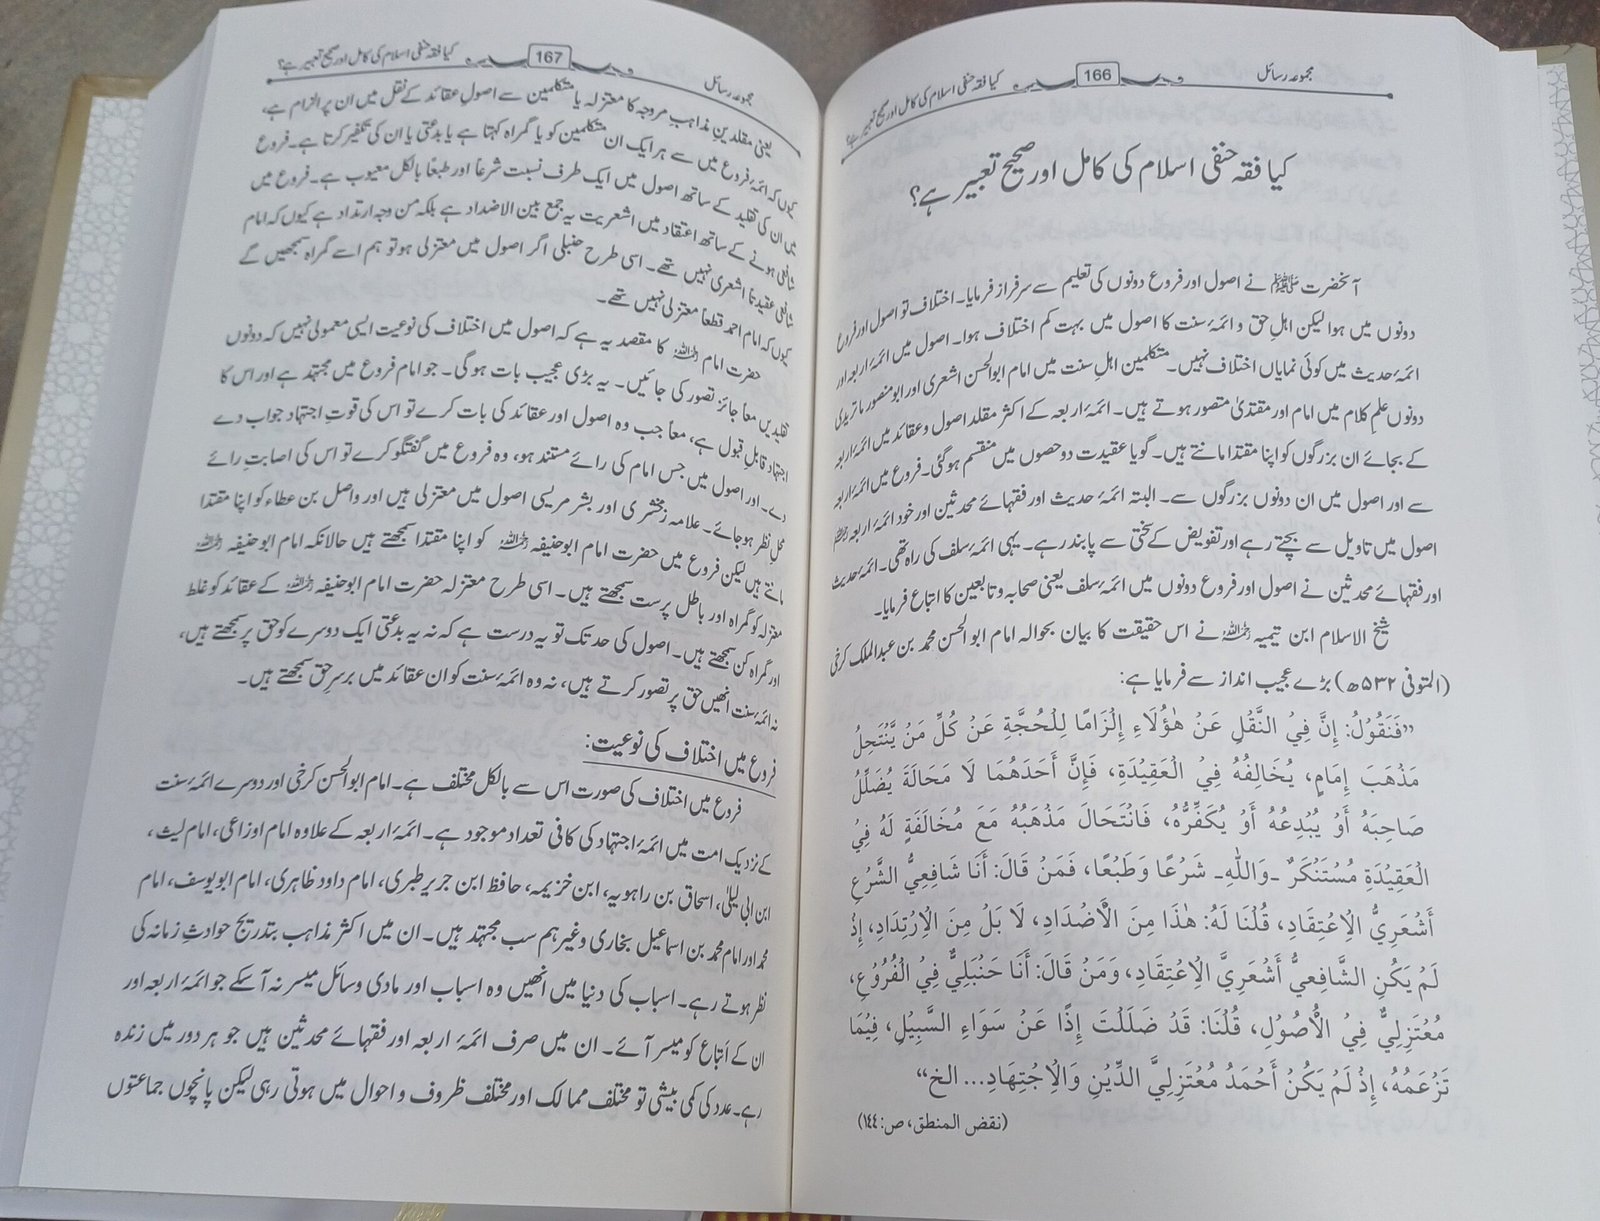 مجموعہ رسائل
166
کیا فقہ حنفی اسلام کی کامل اور صحیح تعبیر ہے؟
کیا فقہ حنفی اسلام کی کامل اور صحیح تعبیر ہے؟
آنحضرت ﷺ نے اصول اور فروع دونوں کی تعلیم سے سرفراز فرمایا۔ اختلاف تو اصول اور فروع
دونوں میں ہوا لیکن اہلِ حق و ائمۂ سنت کا اصول میں بہت کم اختلاف ہوا۔ اصول میں ائمۂ اربعہ اور
ائمۂ حدیث میں کوئی نمایاں اختلاف نہیں۔ متکلمین اہلِ سنت میں امام ابو الحسن اشعری اور ابو منصور ماتریدی
دونوں علمِ کلام میں امام اور مقتدیٰ متصور ہوتے ہیں۔ ائمۂ اربعہ کے اکثر مقلد اصول و عقائد میں ائمۂ اربعہ
کے بجائے ان بزرگوں کو اپنا مقتدا مانتے ہیں۔ گویا عقیدت دو حصوں میں منقسم ہو گئی۔ فروع میں ائمۂ اربعہ
سے اور اصول میں ان دونوں بزرگوں سے۔ البتہ ائمۂ حدیث اور فقہائے محدثین اور خود ائمۂ اربعہ رحمہم اللہ
اصول میں تاویل سے بچتے رہے اور تفویض کے سختی سے پابند رہے۔ یہی ائمۂ سلف کی راہ تھی۔ ائمۂ حدیث
اور فقہائے محدثین نے اصول اور فروع دونوں میں ائمۂ سلف یعنی صحابہ و تابعین کا اتباع فرمایا۔
شیخ الاسلام ابن تیمیہ رحمہ اللہ نے اس حقیقت کا بیان بحوالہ امام ابو الحسن محمد بن عبد الملک کرخی
(المتوفی ۵۳۲ھ) بڑے عجیب انداز سے فرمایا ہے:
”فَنَقُوْلُ: إِنَّ فِيْ النَّقْلِ عَنْ هٰؤُلَاءِ إِلْزَامًا لِلْحُجَّةِ عَنْ كُلِّ مَنْ يَّنْتَحِلُ
مَذْهَبَ إِمَامٍ، يُخَالِفُهُ فِيْ الْعَقِيْدَةِ، فَإِنَّ أَحَدَهُمَا لَا مَحَالَةَ يُضَلِّلُ
صَاحِبَهُ أَوْ يُبْدِعُهُ أَوْ يُكَفِّرُهُ، فَانْتَحَالَ مَذْهَبَهُ مَعَ مُخَالَفَةٍ لَهُ فِيْ
الْعَقِيْدَةِ مُسْتَنْكَرٌ ـ وَاللّٰهِ ـ شَرْعًا وَطَبْعًا، فَمَنْ قَالَ: أَنَا شَافِعِيُّ الشَّرْعِ
أَشْعَرِيُّ الْاِعْتِقَادِ، قُلْنَا لَهُ: هٰذَا مِنَ الْأَضْدَادِ، لَا بَلْ مِنَ الْاِرْتِدَادِ، إِذْ
لَمْ يَكُنِ الشَّافِعِيُّ أَشْعَرِيَّ الْاِعْتِقَادِ، وَمَنْ قَالَ: أَنَا حَنْبَلِيٌّ فِيْ الْفُرُوْعِ،
مُعْتَزِلِيٌّ فِيْ الْأُصُوْلِ، قُلْنَا: قَدْ ضَلَلْتَ إِذًا عَنْ سَوَاءِ السَّبِيْلِ، فِيْمَا
تَزْعَمُهُ، إِذْ لَمْ يَكُنْ أَحْمَدُ مُعْتَزِلِيَّ الدِّيْنِ وَالْاِجْتِهَادِ... الخ“
(نقض المنطق، ص: ۱۴۴)
مجموعہ رسائل
167
کیا فقہ حنفی اسلام کی کامل اور صحیح تعبیر ہے؟
یعنی مقلدینِ مذاہبِ مروجہ کا معتزلہ یا متکلمین سے اصولِ عقائد کے نقل میں ان پر الزام ہے،
کیوں کہ ائمۂ فروع میں سے ہر ایک ان متکلمین کو یا گمراہ کہتا ہے یا بدعتی یا ان کی تکفیر کرتا ہے۔ فروع
میں ان کی تقلید کے ساتھ اصول میں ایک طرف نسبت شرعاً اور طبعاً بالکل معیوب ہے۔ فروع میں
شافعی ہونے کے ساتھ اعتقاد میں اشعریت یہ جمع بین الاضداد ہے بلکہ من وجہ ارتداد ہے کیوں کہ امام
شافعی عقیدتاً اشعری نہیں تھے۔ اسی طرح حنبلی اگر اصول میں معتزلی ہو تو ہم اسے گمراہ سمجھیں گے
کیوں کہ امام احمد قطعاً معتزلی نہیں تھے۔
حضرت امام رحمہ اللہ کا مقصد یہ ہے کہ اصول میں اختلاف کی نوعیت ایسی معمولی نہیں کہ دونوں
تقلیدیں معاً جائز تصور کی جائیں۔ یہ بڑی عجیب بات ہوگی۔ جو امام فروع میں مجتہد ہے اور اس کا
اجتہاد قابلِ قبول ہے، معاً جب وہ اصول اور عقائد کی بات کرے تو اس کی قوتِ اجتہاد جواب دے
دے۔ اور اصول میں جس امام کی رائے مستند ہو، وہ فروع میں گفتگو کرے تو اس کی اصابتِ رائے
محلِ نظر ہو جائے۔ علامہ زمخشری اور بشر مریسی اصول میں معتزلی ہیں اور واصل بن عطاء کو اپنا مقتدا
مانتے ہیں لیکن فروع میں حضرت امام ابو حنیفہ رحمہ اللہ کو اپنا مقتدا سمجھتے ہیں حالانکہ امام ابو حنیفہ رحمہ اللہ
معتزلہ کو گمراہ اور باطل پرست سمجھتے ہیں۔ اسی طرح معتزلہ حضرت امام ابو حنیفہ رحمہ اللہ کے عقائد کو غلط
اور گمراہ کن سمجھتے ہیں۔ اصول کی حد تک تو یہ درست ہے کہ نہ یہ بدعتی ایک دوسرے کو حق پر سمجھتے ہیں،
نہ ائمۂ سنت انھیں حق پر تصور کرتے ہیں، نہ وہ ائمۂ سنت کو ان عقائد میں برسرِ حق سمجھتے ہیں۔
فروع میں اختلاف کی نوعیت:
فروع میں اختلاف کی صورت اس سے بالکل مختلف ہے۔ امام ابو الحسن کرخی اور دوسرے ائمۂ سنت
کے نزدیک امت میں ائمۂ اجتہاد کی کافی تعداد موجود ہے۔ ائمۂ اربعہ کے علاوہ امام اوزاعی، امام لیث،
ابن ابی لیلیٰ، اسحاق بن راہویہ، ابن خزیمہ، حافظ ابن جریر طبری، امام داود ظاہری، امام ابو یوسف، امام
محمد اور امام محمد بن اسماعیل بخاری وغیرہم سب مجتہد ہیں۔ ان میں اکثر مذاہب بتدریج حوادثِ زمانہ کی
نظر ہوتے رہے۔ اسباب کی دنیا میں انھیں وہ اسباب اور مادی وسائل میسر نہ آسکے جو ائمۂ اربعہ اور
ان کے اَتباع کو میسر آئے۔ ان میں صرف ائمۂ اربعہ اور فقہائے محدثین ہیں جو ہر دور میں زندہ
رہے۔ عدد کی کمی بیشی تو مختلف ممالک اور مختلف ظروف و احوال میں ہوتی رہی لیکن پانچوں جماعتوں